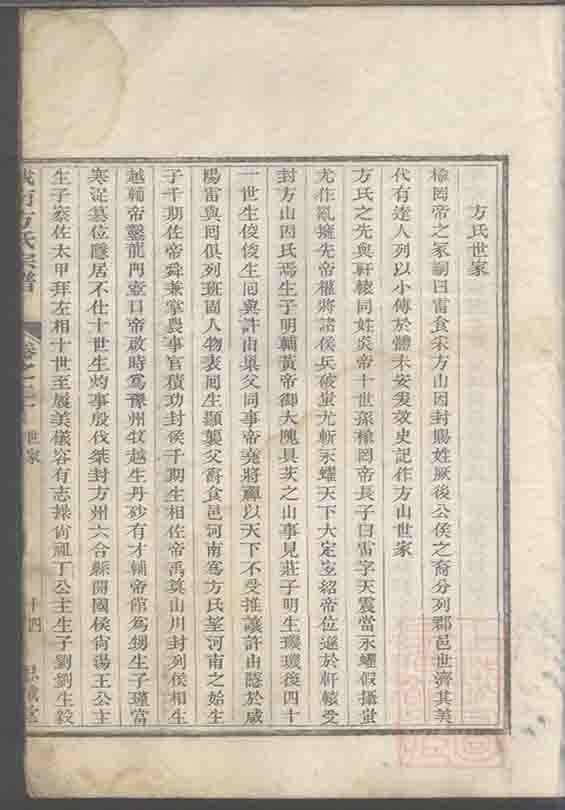 方氏世家
榆罔帝之冢嗣曰雷食采方山因封賜姓厥後公侯之裔分列郡邑世濟其美
代有達人列以小傳於體未安爰效史記作方山世家
方氏之先與軒轅同姓炎帝十世孫榆罔帝長子曰雷字天震當永曜假攝蚩
尤作亂擁先帝權將諸侯兵破蚩尤斬永曜天下大定宜紹帝位遜於軒轅受
封方山因氏焉生子明輔黃帝御大隗具茨之山事見莊子明生璣璣後四十
一世生俊俊生回與許由巢父同事帝堯將禪以天下不受推讓許由隱於咸
陽雷與回俱列班固人物表回生顯襲父爵食邑河南為方氏望河南之始生
子千期佐帝舜兼掌農事官積功封侯千期生相佐帝禹奠山川封列侯相生
越輔帝鑿龍門壺口帝啟時為豫州牧越生丹砂有才輔帝館為甥生子瑾當
寒浞篡位隱居不仕十世生灼事殷伐桀封方州六合縣開國侯尚湯王公主
生子寀佐太甲拜左相十世至展美儀容有志操尚祖丁公主生子劉劉生毅
城南方氏宗譜
卷之二
世家
十四